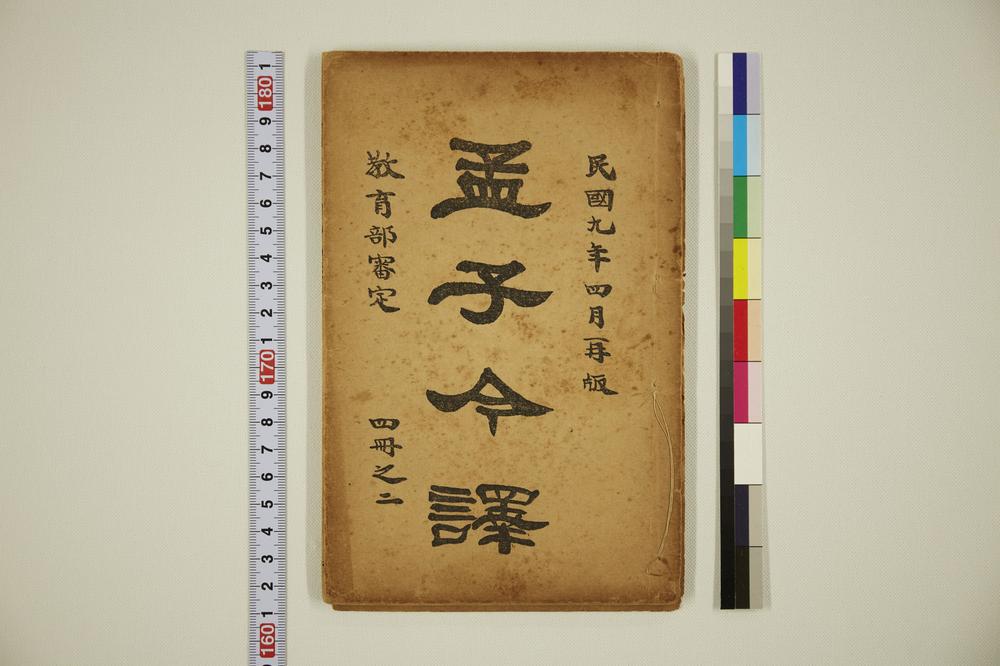 民國九年四月再版
孟子今譯
教育部審定
四冊之二
1
180
9
8
7
6
5
4
3
2
1
170
9
8
7
6
5
4
3
2
1
160